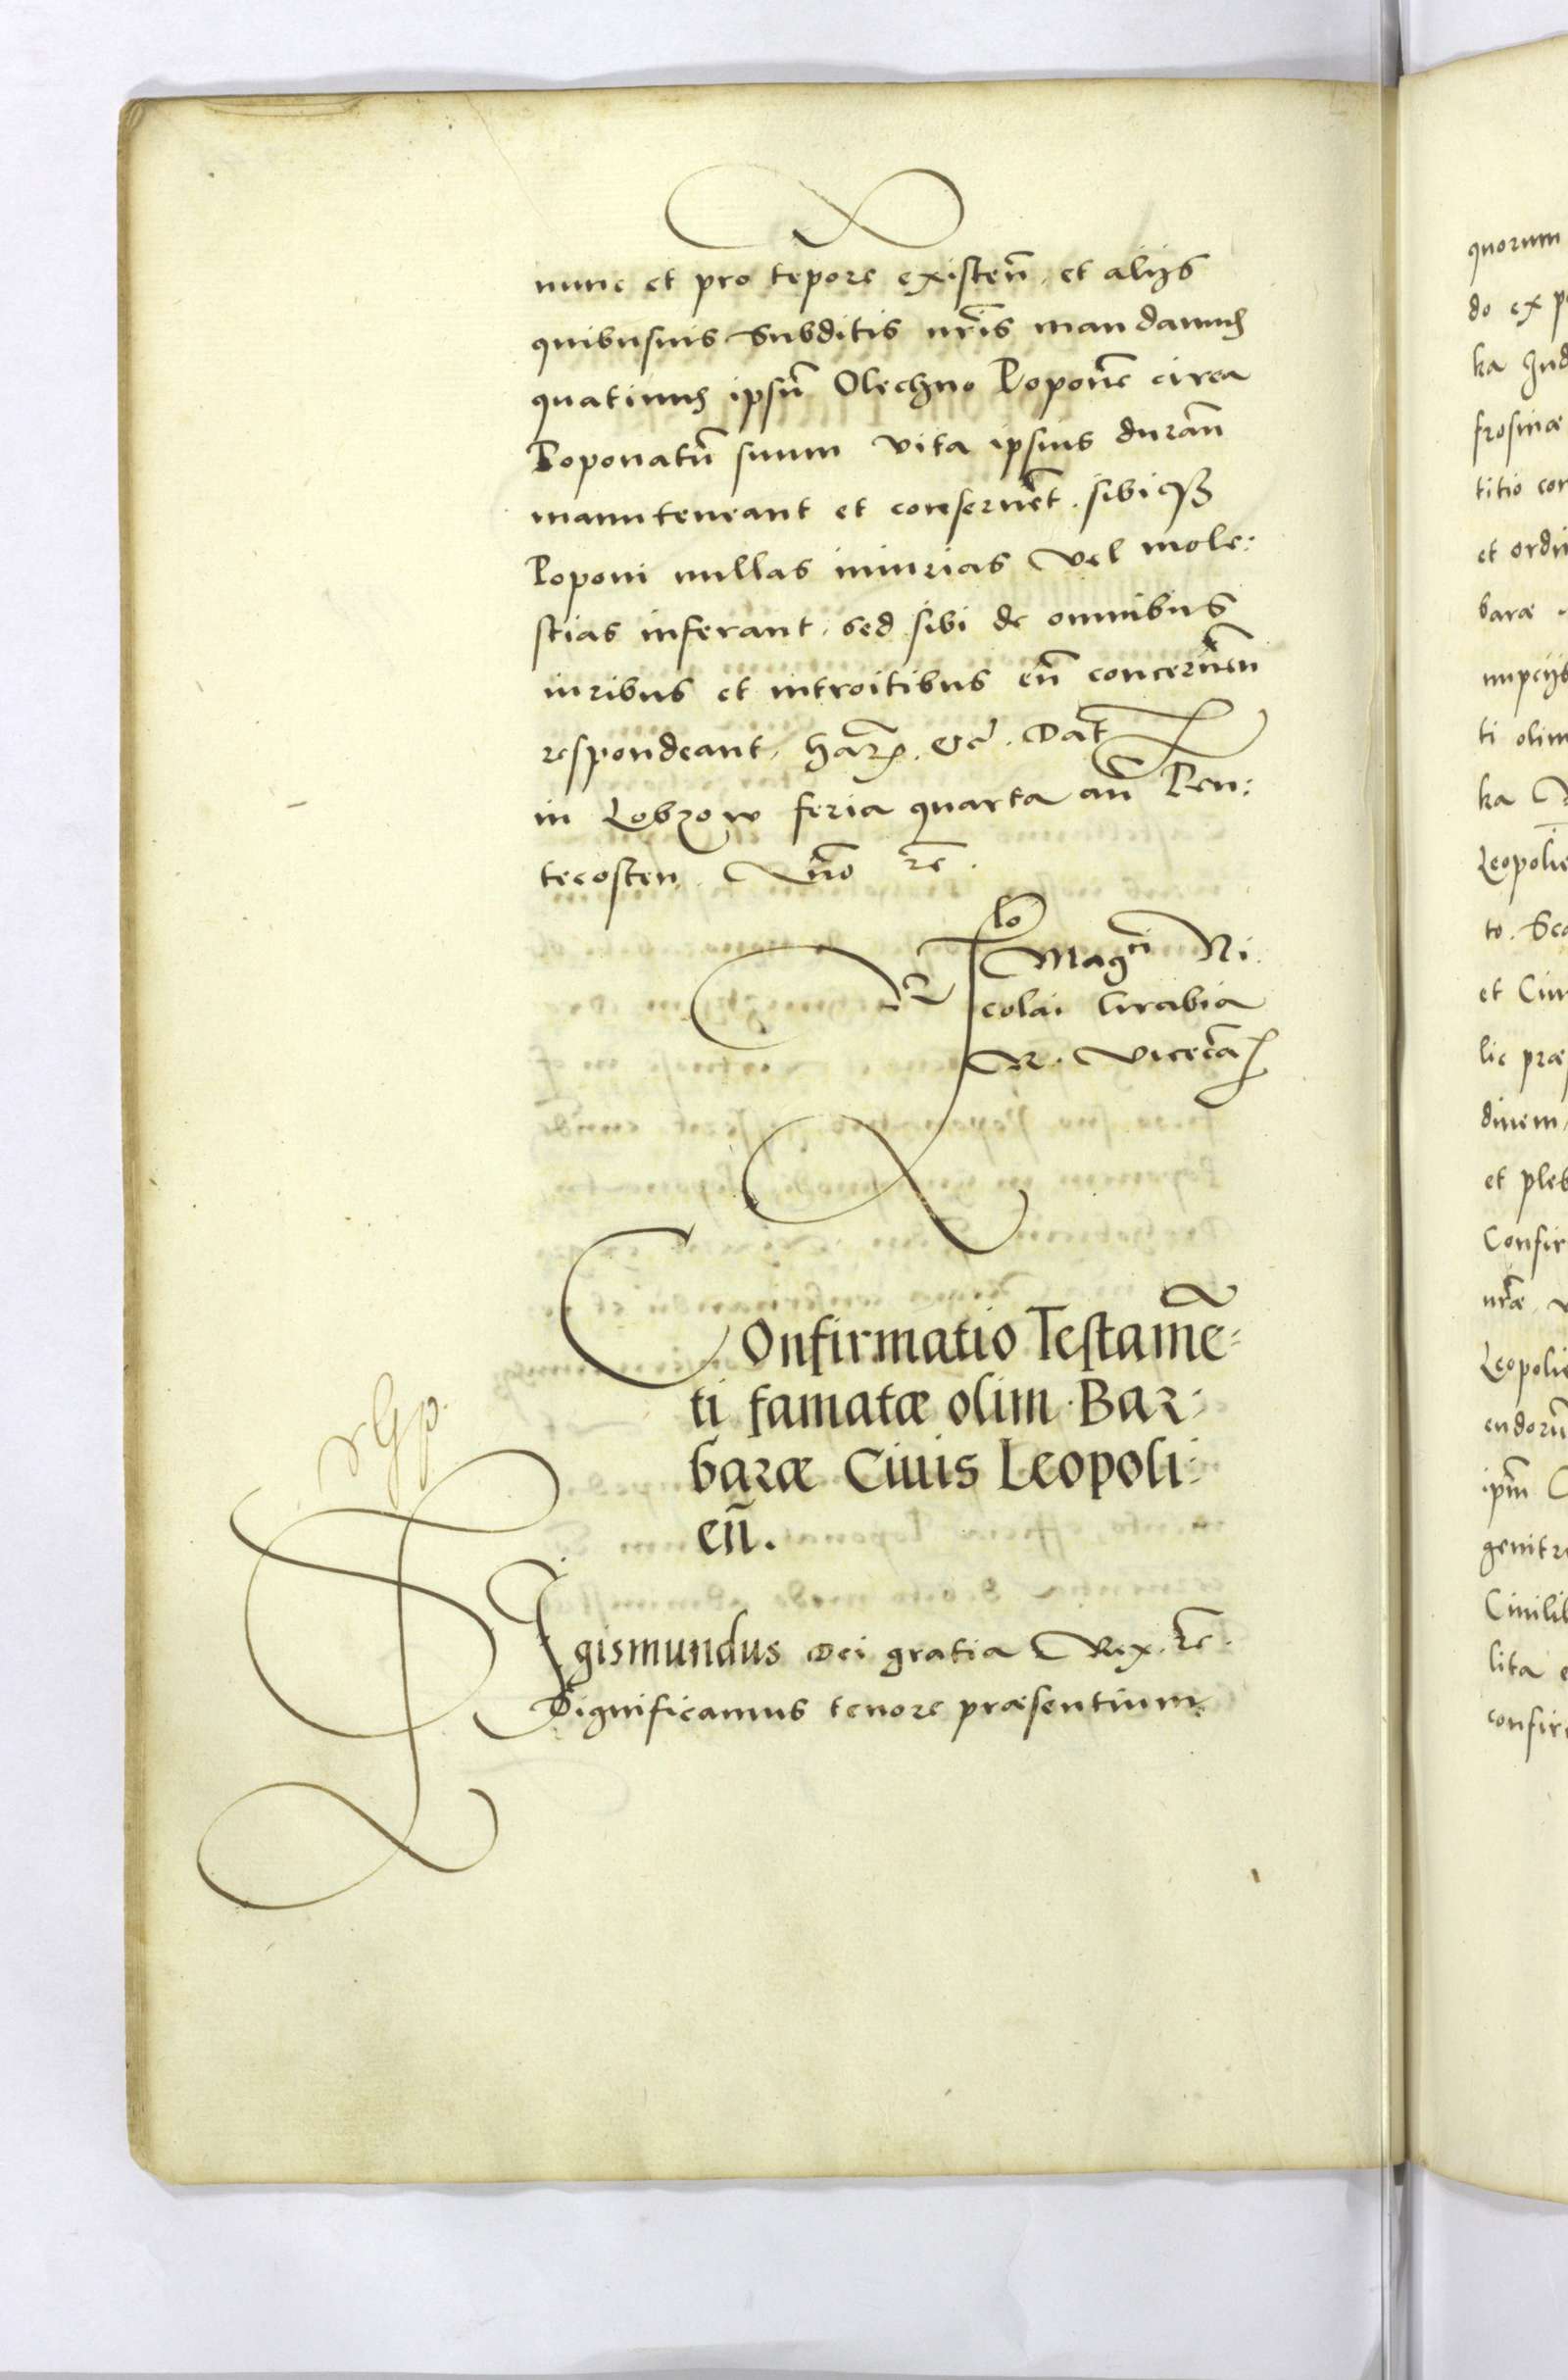 nunc et pro tẽpore existeñ, et alijs
quibusuis Subditis nr̃is mandamus
quatinus ipsũ Olechno Poponẽ circa
Poponatũ suum vita ipsius durañ
manuteneant et conseruẽt. sibiq3
Poponi nullas iniurias vel mole:
stias inferant, sed sibi de omnibus
iuribus et introitibus eũ concerneñ
respondeant, har̃. &c̃. Dat̃
in Lobzow feria quarta añ Pen:
tecosten. Ãno rc̃.
Rlo Magci Ni.
colai Grabia
R. Vicecã
COnfirmatio Testamẽ:
ti famatæ olim Bar:
baræ Ciuis Leopoli:
eñ.
SIgismundus Dei gratia Rex. rc̃.
Significamus tenore præsentium.
quorum
do ex p
ka Jud
frosinæ
titio con
et ordi
baræ
nupcijs
ti olim
ka
Leopolie
to. Sc
et Ciu
lie præ
dinem,
et pleb
Confir
nr̃æ
Leopolie
endorũ
ipm̃
genitr
Ciuilib
lita e
confir